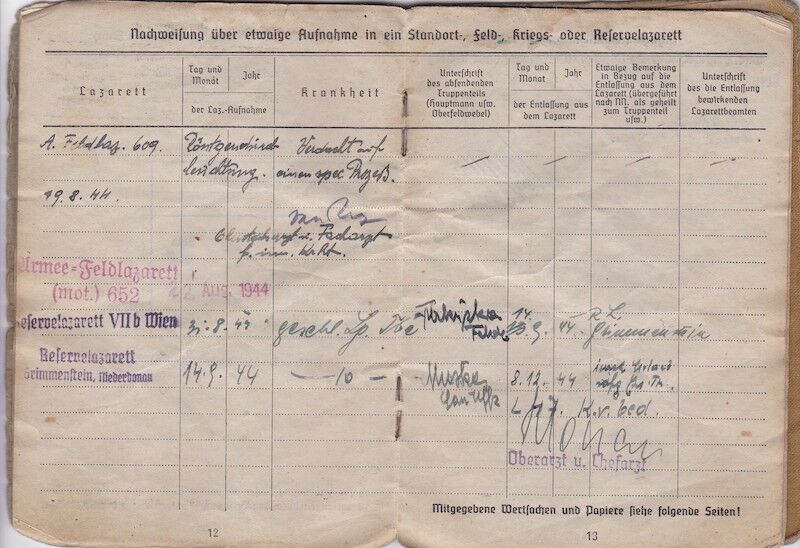 Nachweisung über etwaige Aufnahme in ein Standort-, Feld-, Kriegs- oder Reservelazarett
Lazarett
Tag und Monat
Jahr
der Laz.-Aufnahme
Krankheit
Unterschrift
des absendenden
Truppenteils
(Hauptmann usw.
Oberfeldwebel)
Tag und
Monat
Jahr
der Entlassung aus
dem Lazarett
Etwaige Bemerkung
in Bezug auf die
Entlassung aus dem
Lazarett (übergeführt
nach NN. als geheilt
zum Truppenteil
usw.)
Unterschrift
des die Entlassung
bewirkenden
Lazarettbeamten
A. Feldlaz. 609. Röntgendurch Verdacht auf
leuchtung. einen spez. Prozeß.
19. 8. 44.
f. inn. Krkht.
Armee-Feldlazarett
(mot.) 652 22. Aug. 1944
Reservelazarett VII b Wien 31. 8. 44 geschl. 14. 9. 44 R. L.
Grimmenstein
Reservelazarett
Grimmenstein, Niederdonau 14. 9. 44 8. 12. 44
K.v. bed.
Oberarzt u. Chefarzt
Mitgegebene Wertsachen und Papiere siehe folgende Seiten!
12
13